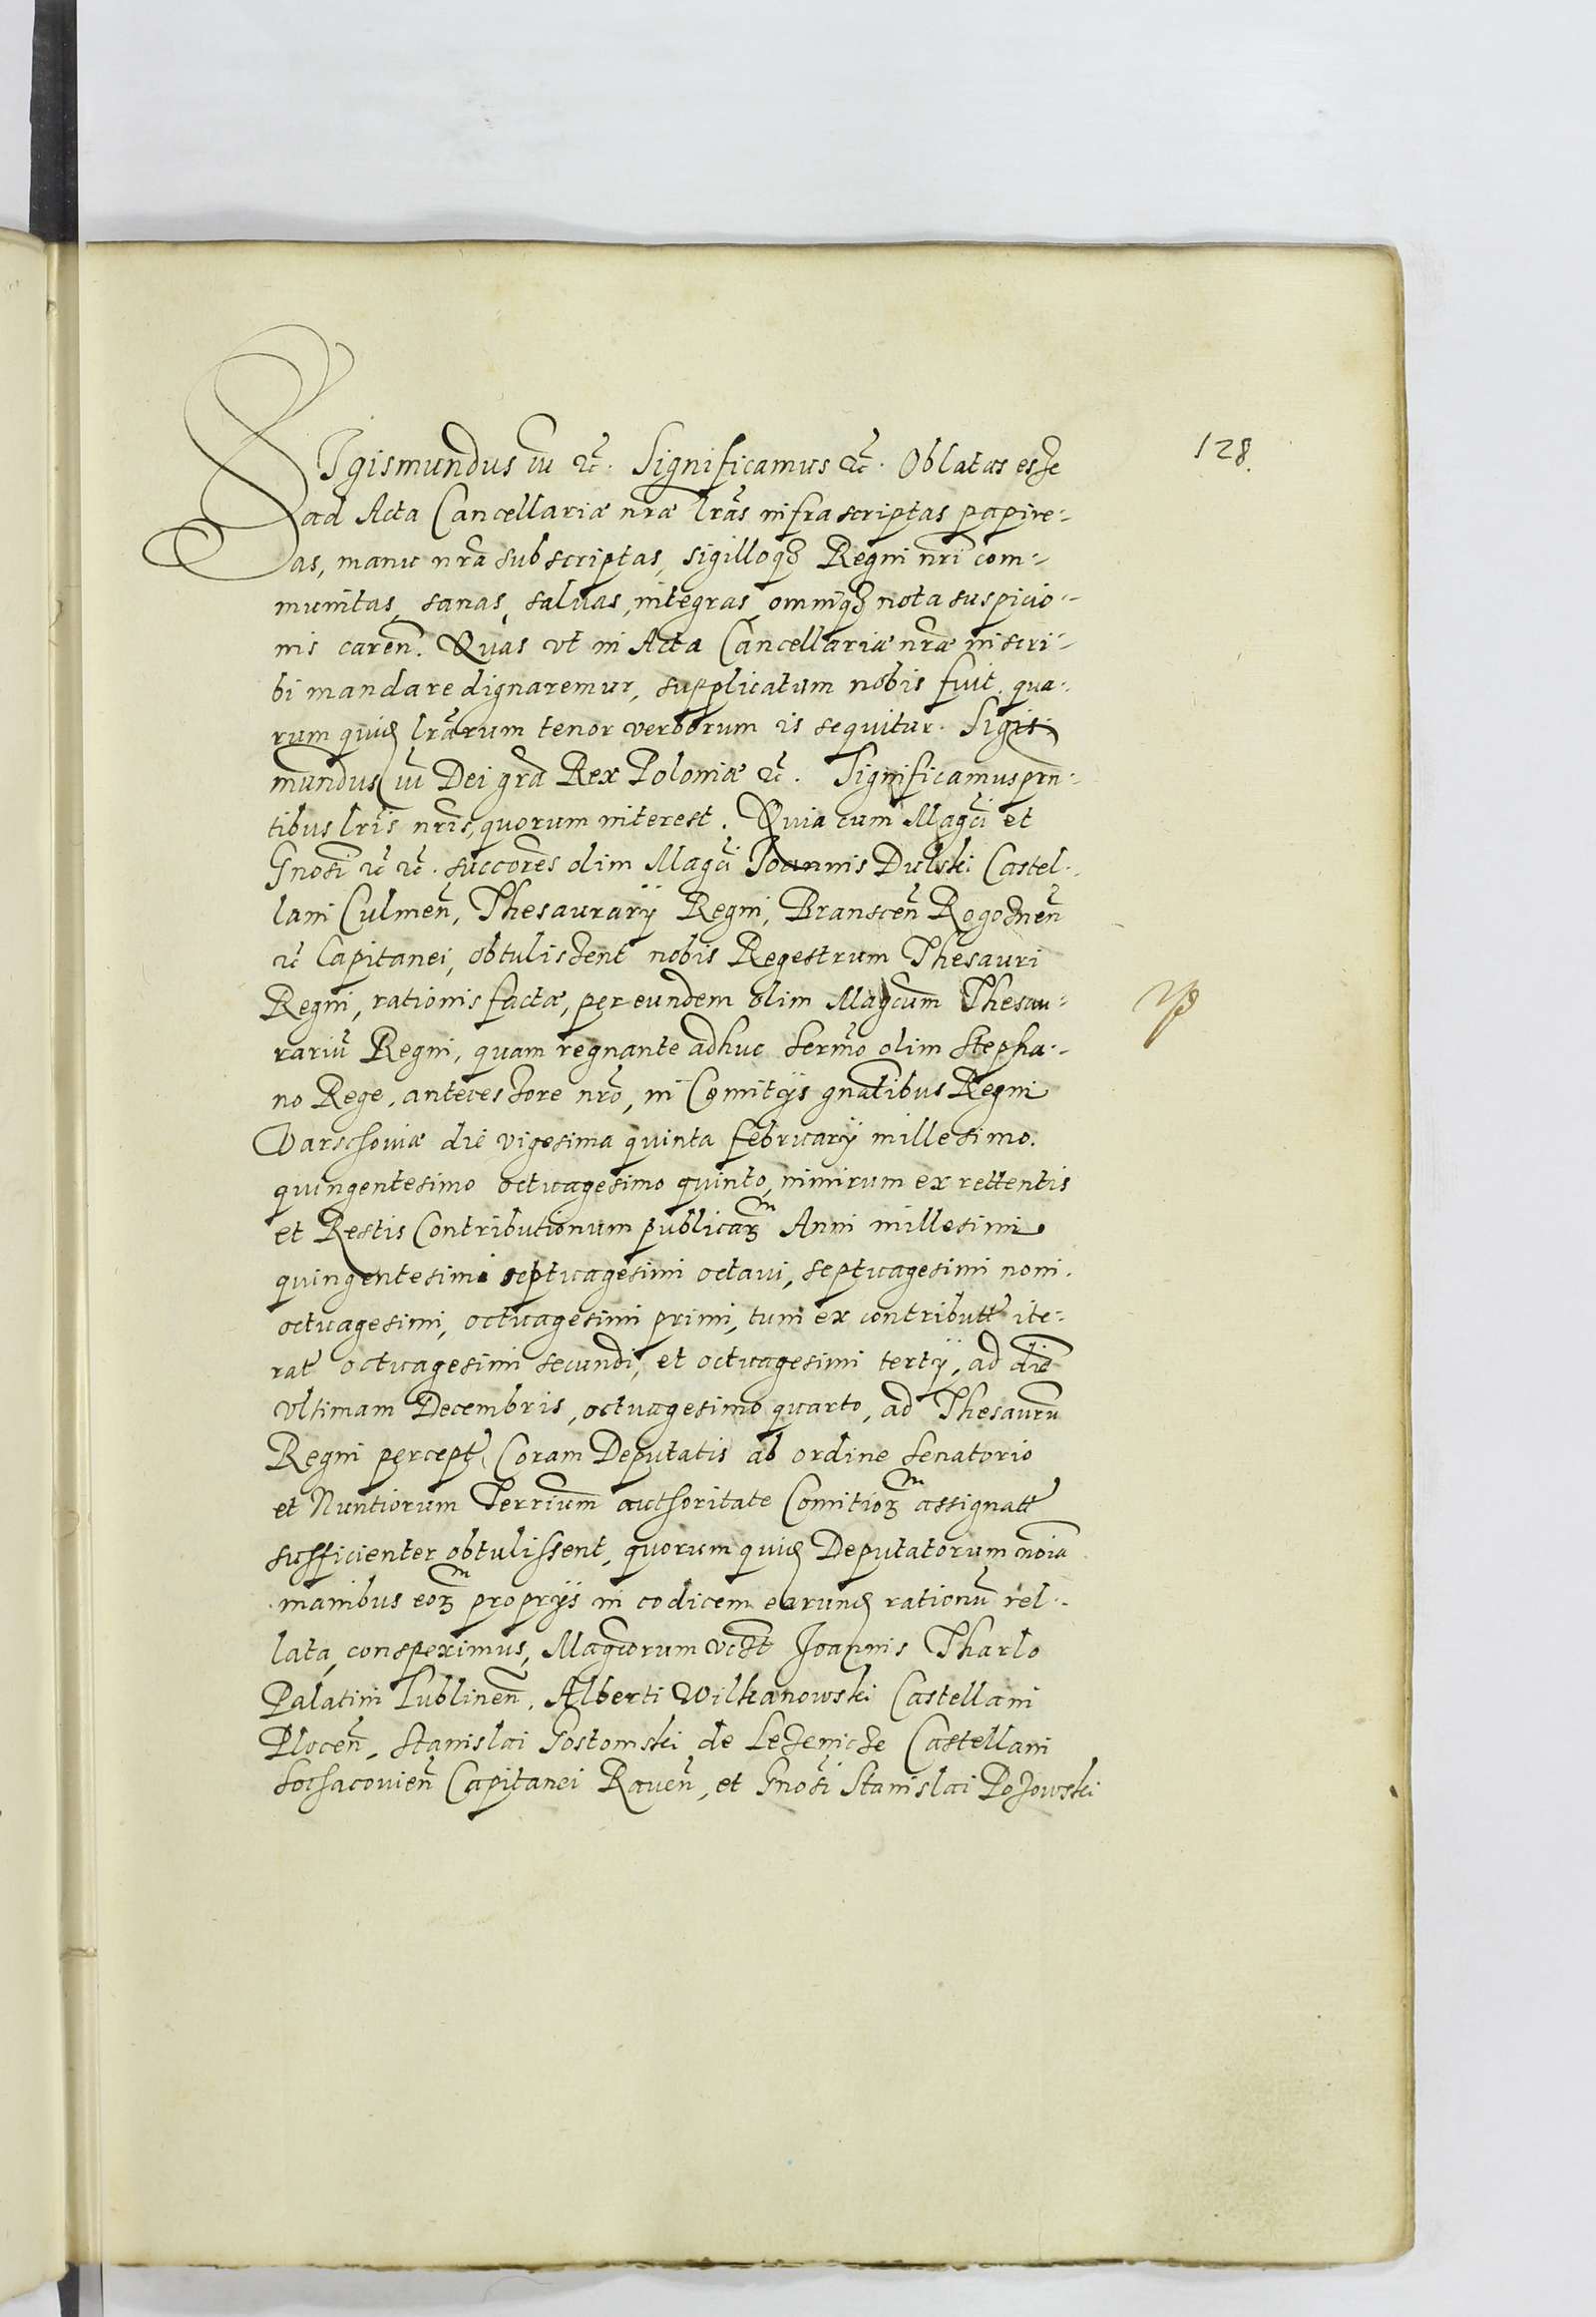 128.
SIgismundus iii etc. Significamus etc. Oblatas esse
ad Acta Cancellariæ nræ lras infra scriptas papire-
as, manu nra subscriptas, sigilloq3 Regni nri com-
munitas, sanas, saluas, integras, omniq3 nota suspicio-
nis caren. Quas vt in Acta Cancellariæ nræ inscri-
bi mandare dignaremur, supplicatum nobis fuit. qua-
rum quid lrarum tenor verborum is sequitur. Sigis-
mundus iii Dei gra Rex Poloniæ etc. Significamus prn-
tibus lris nris, quorum interest. Quia cum Magci et
Gnosi etc etc. succores olim Magci Joannis Dulski Castel-
lani Culmen, Thesaurarij Regni, Branscen Rogoznen
etc Capitanei, obtulissent nobis Regestrum Thesauri
Regni, rationis factæ, per eundem olim Magcum Thesau-
rariu Regni, quam regnante adhuc Sermo olim Stepha-
no Rege, antecessore nro, in Comitijs gnalibus Regni
Varschouiæ die vigesima quinta february millesimo.
quingentesimo octuagesimo quinto, nimirum ex rettentis
et Restis Contributionum publicar Anni millesimi
quingentesimi septuagesimi octaui, septuagesimi noni.
octuagesimi, octuagesimi primi, tum ex contributt ite-
rat octuagesimi secundi, et octuagesimi tertij, ad die
vltimam Decembris, octuagesimo quarto, ad Thesauru
Regni percept, Coram Deputatis ab ordine Senatorio
et Nuntiorum Terrium authoritate Comitior assignatt
sufficienter obtulissent, quorum quid Deputatorum noia
manibus eor proprijs in codicem earund rationu rel-
lata, conspeximus, Magcorum vcst Joannis Tharlo
Palatini Lublinen, Alberti Wilkanowski Castellani
Plocen, Stanislai Gostomski de Lezenicze Castellani
Sochaconien Capitanei Rauen, et Gnosi Stanislai Pozowski